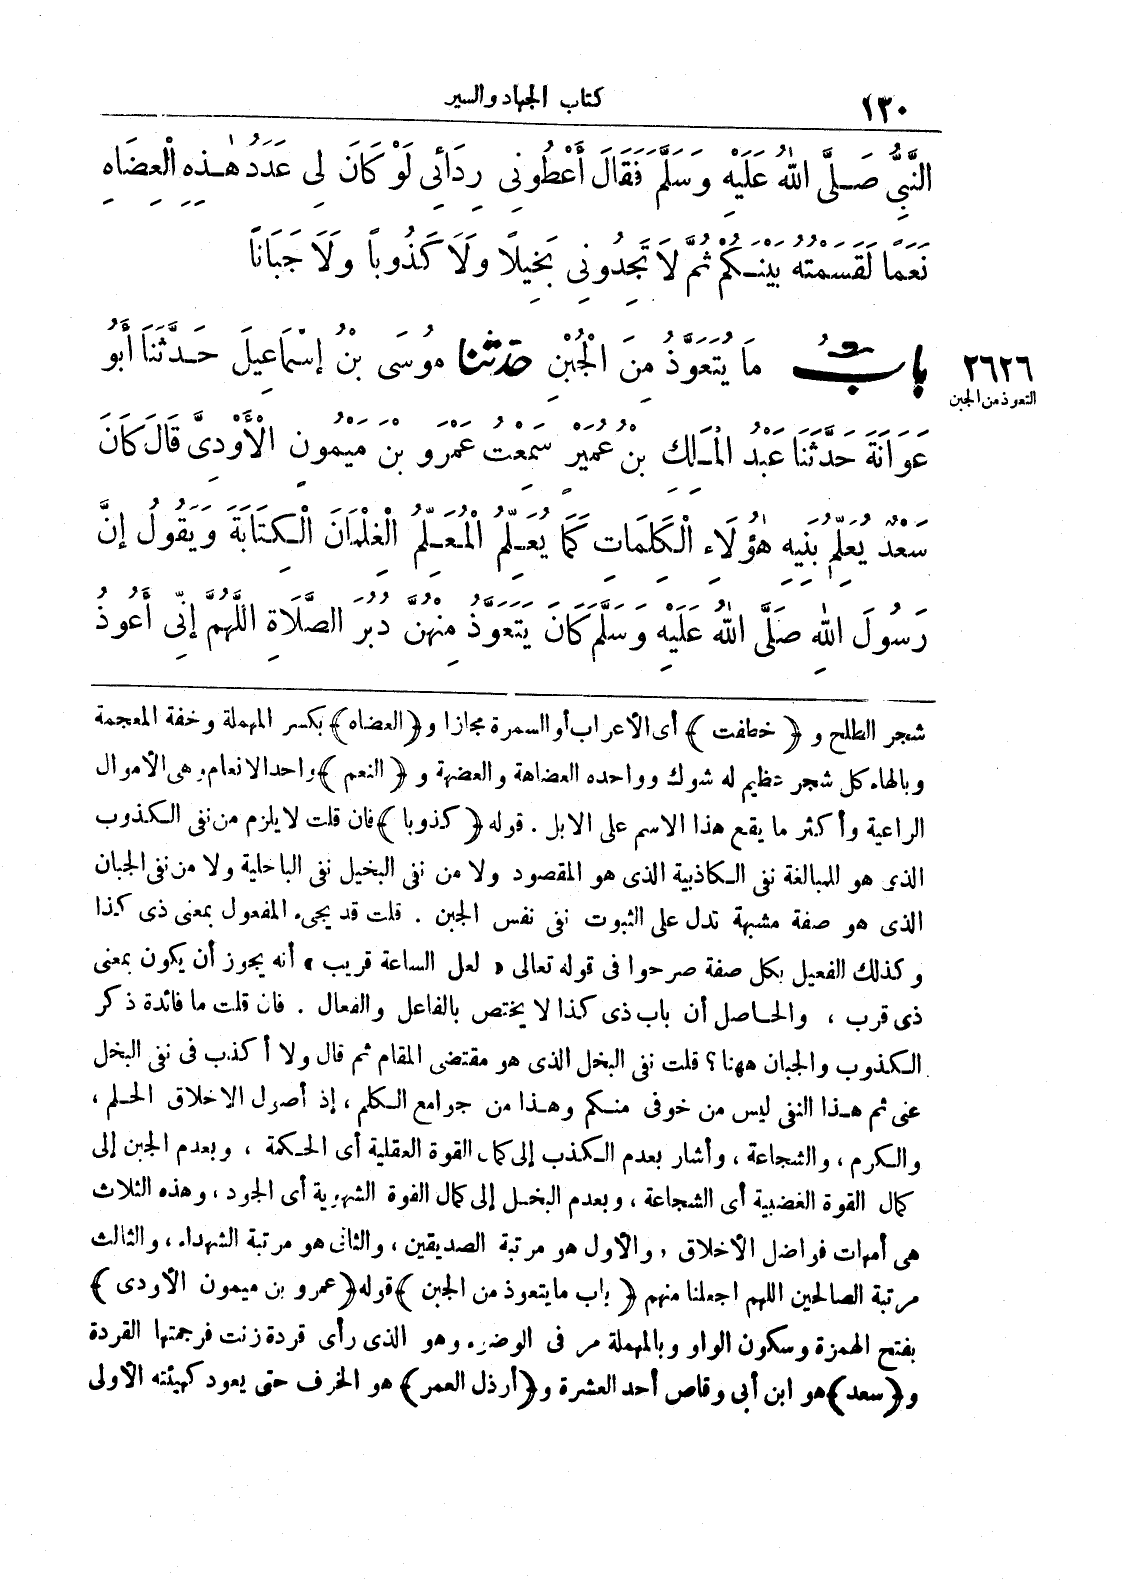 ١٣٠ كتاب الجهاد والسير
النَّبِيُّ صَلَّى اللهُ عَلَيْهِ وَسَلَّمَ فَقَالَ أَعْطُونِي رِدَائِي لَوْ كَانَ لِي عَدَدُ هٰذِهِ الْعِضَاهِ
نَعَمًا لَقَسَمْتُهُ بَيْنَكُمْ ثُمَّ لَا تَجِدُونِي بَخِيلًا وَلَا كَذُوبًا وَلَا جَبَانًا
٢٦٢٦ بابُ مَا يُتَعَوَّذُ مِنَ الْجُبْنِ حدثنا مُوسَى بْنُ إِسْمَاعِيلَ حَدَّثَنَا أَبُو
التعوذ من الجبن
عَوَانَةَ حَدَّثَنَا عَبْدُ الْمَلِكِ بْنُ عُمَيْرٍ سَمِعْتُ عَمْرَو بْنَ مَيْمُونٍ الْأَوْدِيَّ قَالَ كَانَ
سَعْدٌ يُعَلِّمُ بَنِيهِ هٰؤُلَاءِ الْكَلِمَاتِ كَمَا يُعَلِّمُ الْمُعَلِّمُ الْغِلْمَانَ الْكِتَابَةَ وَيَقُولُ إِنَّ
رَسُولَ اللهِ صَلَّى اللهُ عَلَيْهِ وَسَلَّمَ كَانَ يَتَعَوَّذُ مِنْهُنَّ دُبُرَ الصَّلَاةِ اللَّهُمَّ إِنِّي أَعُوذُ
شجر الطلح و ﴿خطفت﴾ أى الأعراب أو السمرة مجازا و ﴿العضاه﴾ بكسر المهملة وخفة المعجمة
وبالهاء كل شجر عظيم له شوك وواحده العضاهة والعضهة و ﴿النعم﴾ واحد الانعام وهى الأموال
الراعية وأكثر ما يقع هذا الاسم على الابل . قوله ﴿كذوبا﴾ فان قلت لا يلزم من نفى الكذوب
الذى هو للمبالغة نفى الكاذبية الذى هو المقصود ولا من نفى البخيل نفى الباخلية ولا من نفى الجبان
الذى هو صفة مشبهة تدل على الثبوت نفى نفس الجبن . قلت قد يجىء المفعول بمعنى ذى كذا
وكذلك الفعيل بكل صفة صرحوا فى قوله تعالى « لعل الساعة قريب » أنه يجوز أن يكون بمعنى
ذى قرب ، والحاصل أن باب ذى كذا لا يختص بالفاعل والفعال . فان قلت ما فائدة ذكر
الكذوب والجبان ههنا ؟ قلت نفى البخل الذى هو مقتضى المقام ثم قال ولا أكذب فى نفى البخل
عنى ثم هذا النفى ليس من خوفى منكم وهذا من جوامع الكلم ، إذ أصول الاخلاق الحلم ،
والكرم ، والشجاعة ، وأشار بعدم الكذب إلى كمال القوة العقلية أى الحكمة ، وبعدم الجبن إلى
كمال القوة الغضبية أى الشجاعة ، وبعدم البخل إلى كمال القوة الشهوية أى الجود ، وهذه الثلاث
هى أمهات فواضل الأخلاق ، والأول هو مرتبة الصديقين ، والثانى هو مرتبة الشهداء ، والثالث
مرتبة الصالحين اللهم اجعلنا منهم ﴿باب ما يتعوذ من الجبن﴾ قوله ﴿عمرو بن ميمون الأودى﴾
بفتح الهمزة وسكون الواو وبالمهملة مر فى الوضوء وهو الذى رأى قردة زنت فرجمتها القردة
و ﴿سعد﴾ هو ابن أبى وقاص أحد العشرة و ﴿أرذل العمر﴾ هو الخرف حتى يعود كهيئته الأولى